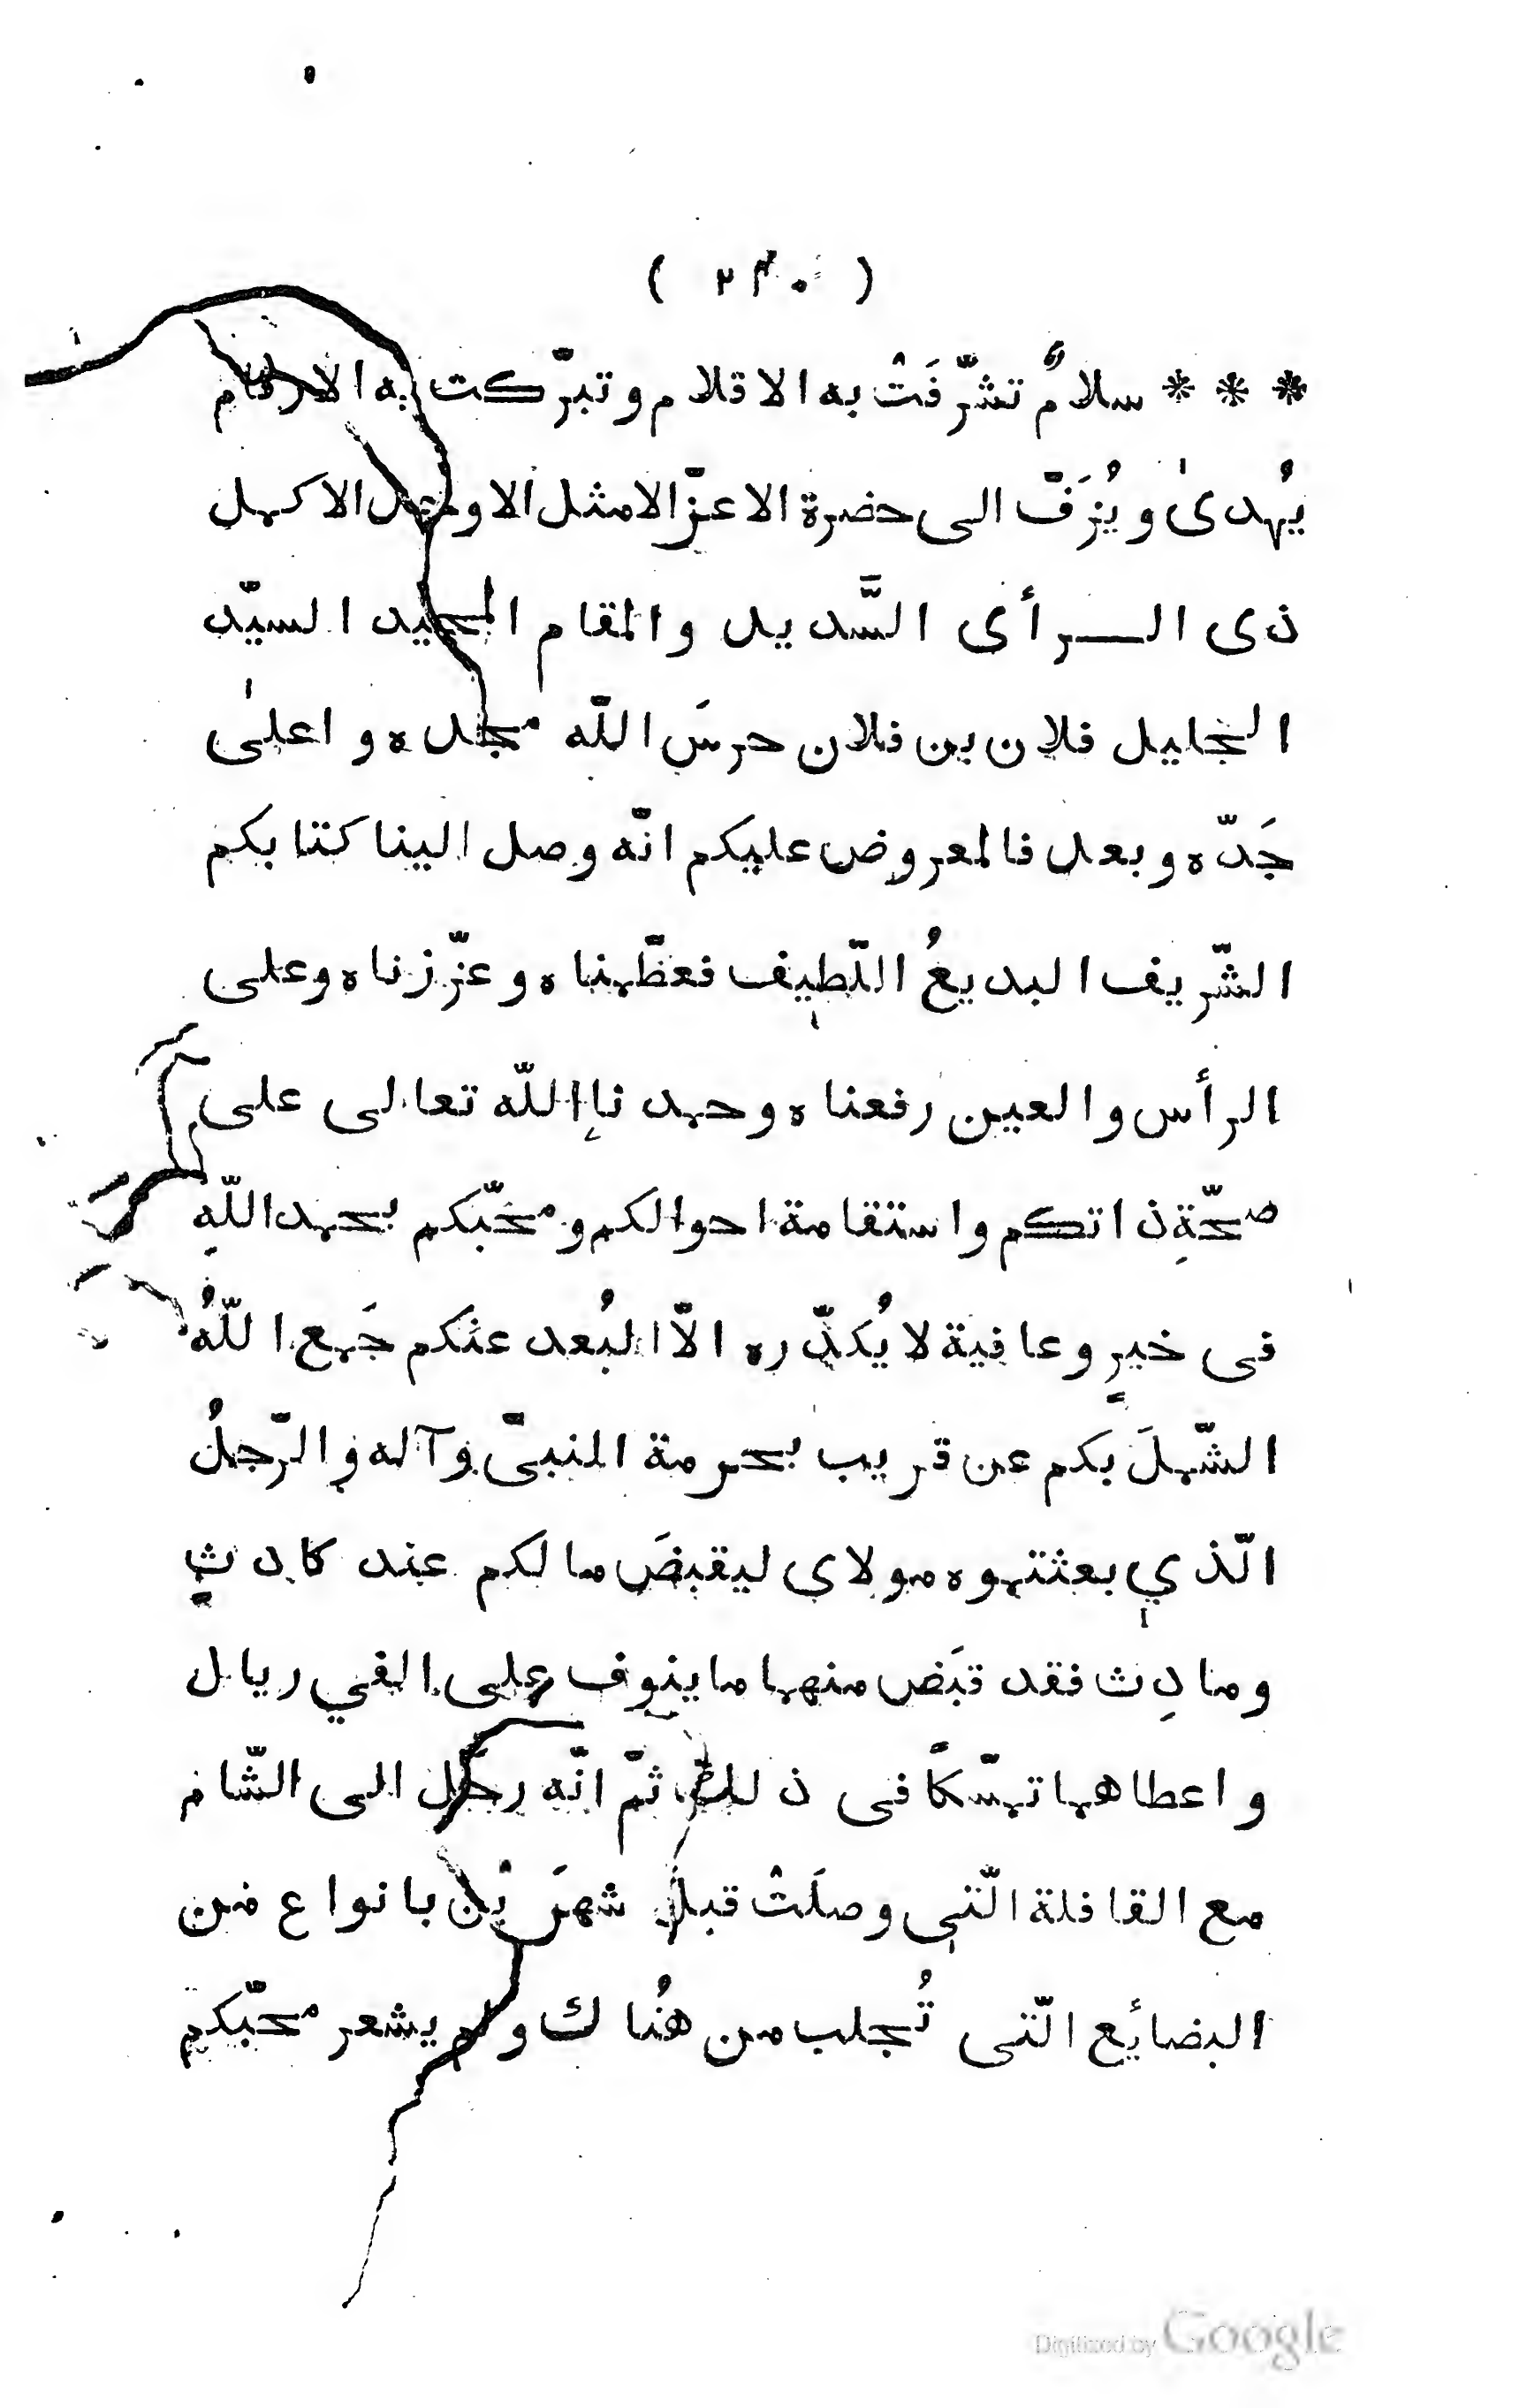 ( ٢٣٠ )
* * * سلامٌ تشرّفَتْ به الاقلام وتبرّكت به الارقام
يُهدىٰ ويُزَفّ الى حضرة الاعزّ الامثل الاوحد الاكمل
ذى الرأى السَّديد والمقام المجيد السيّد
الجليل فلان بن فلان حرسَ اللّه مجده واعلىٰ
جَدّه وبعد فالمعروض عليكم انّه وصل الينا كتابكم
الشّريف البديعُ اللّطيف فعظّمناه وعزّزناه وعلى
الرأس والعين رفعناه وحمدنا اللّه تعالى على
صحّةِ ذاتكم واستقامة احوالكم ومحبّكم بحمد اللّهِ
فى خيرٍ وعافية لا يُكدّره الّا البُعد عنكم جَمع اللّهُ
الشّملَ بكم عن قريب بحرمة النبىّ وآله والرّجلُ
الّذي بعثتموه مولاى ليقبضَ مالكم عند كادِثٍ
ومادِث فقد قبَض منهما ما ينوف على الفي ريال
واعطاهما تمسّكاً فى ذلك ثمّ انّه رحَل الى الشّام
مع القافلة الّتى وصلَتْ قبل شهرَيْن بانواع من
البضائع الّتى تُجلب من هُناك ولم يشعر محبّكم
Digitized by Google